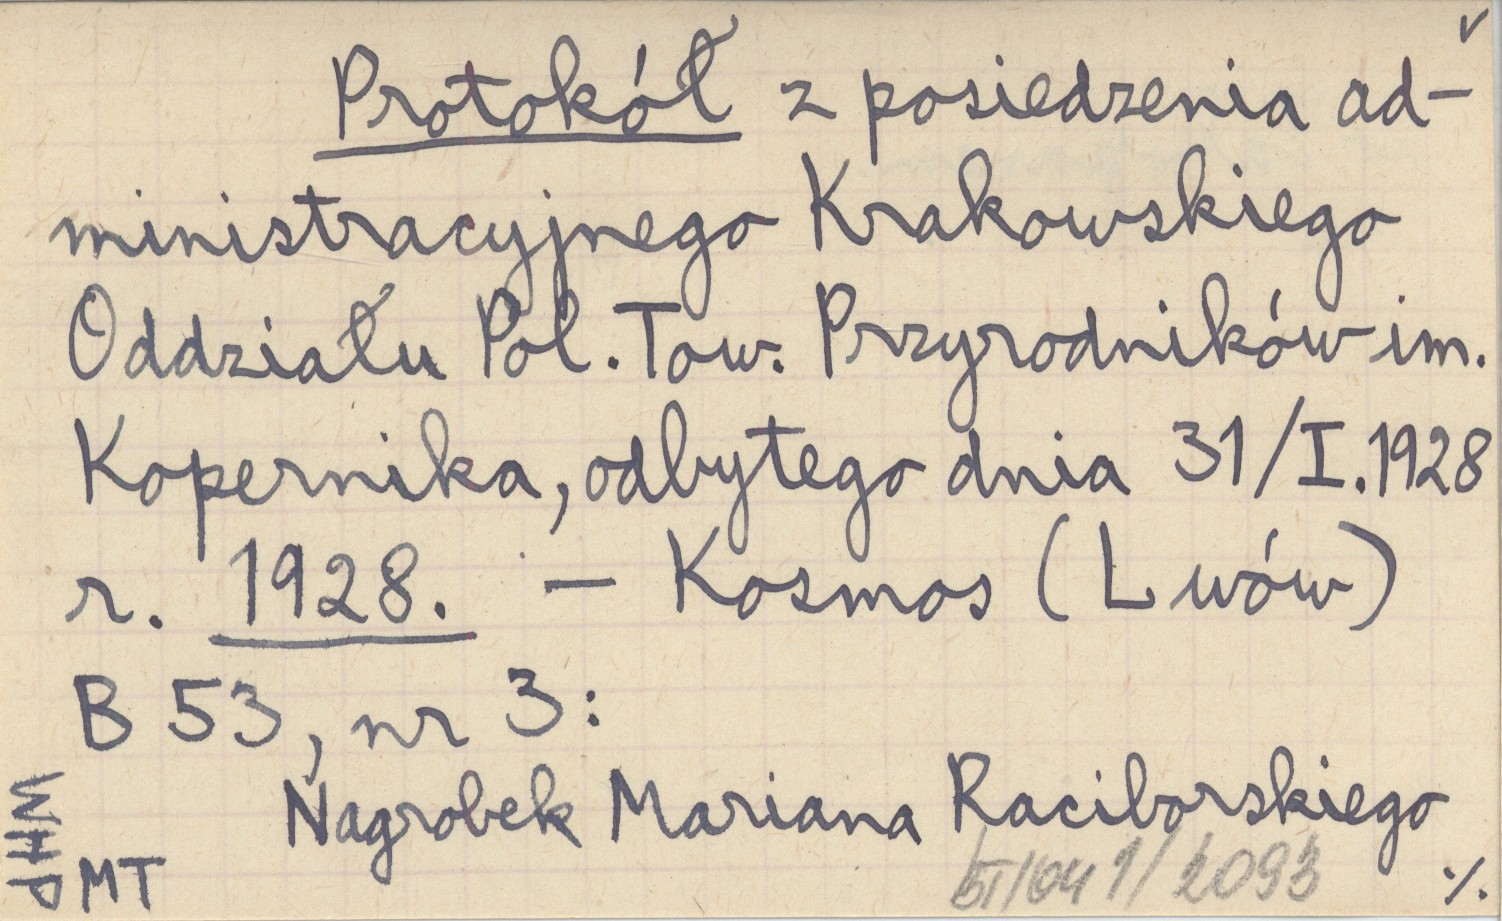 Protokół z posiedzenia ad-
ministracyjnego Krakowskiego
Oddziału Pol. Tow. Przyrodników im.
Kopernika, odbytego dnia 31/I.1928
r. 1928. — Kosmos (Lwów)
B 53, nr 3:
Nagrobek Mariana Raciborskiego
WHP
MT
1/2093
·/.